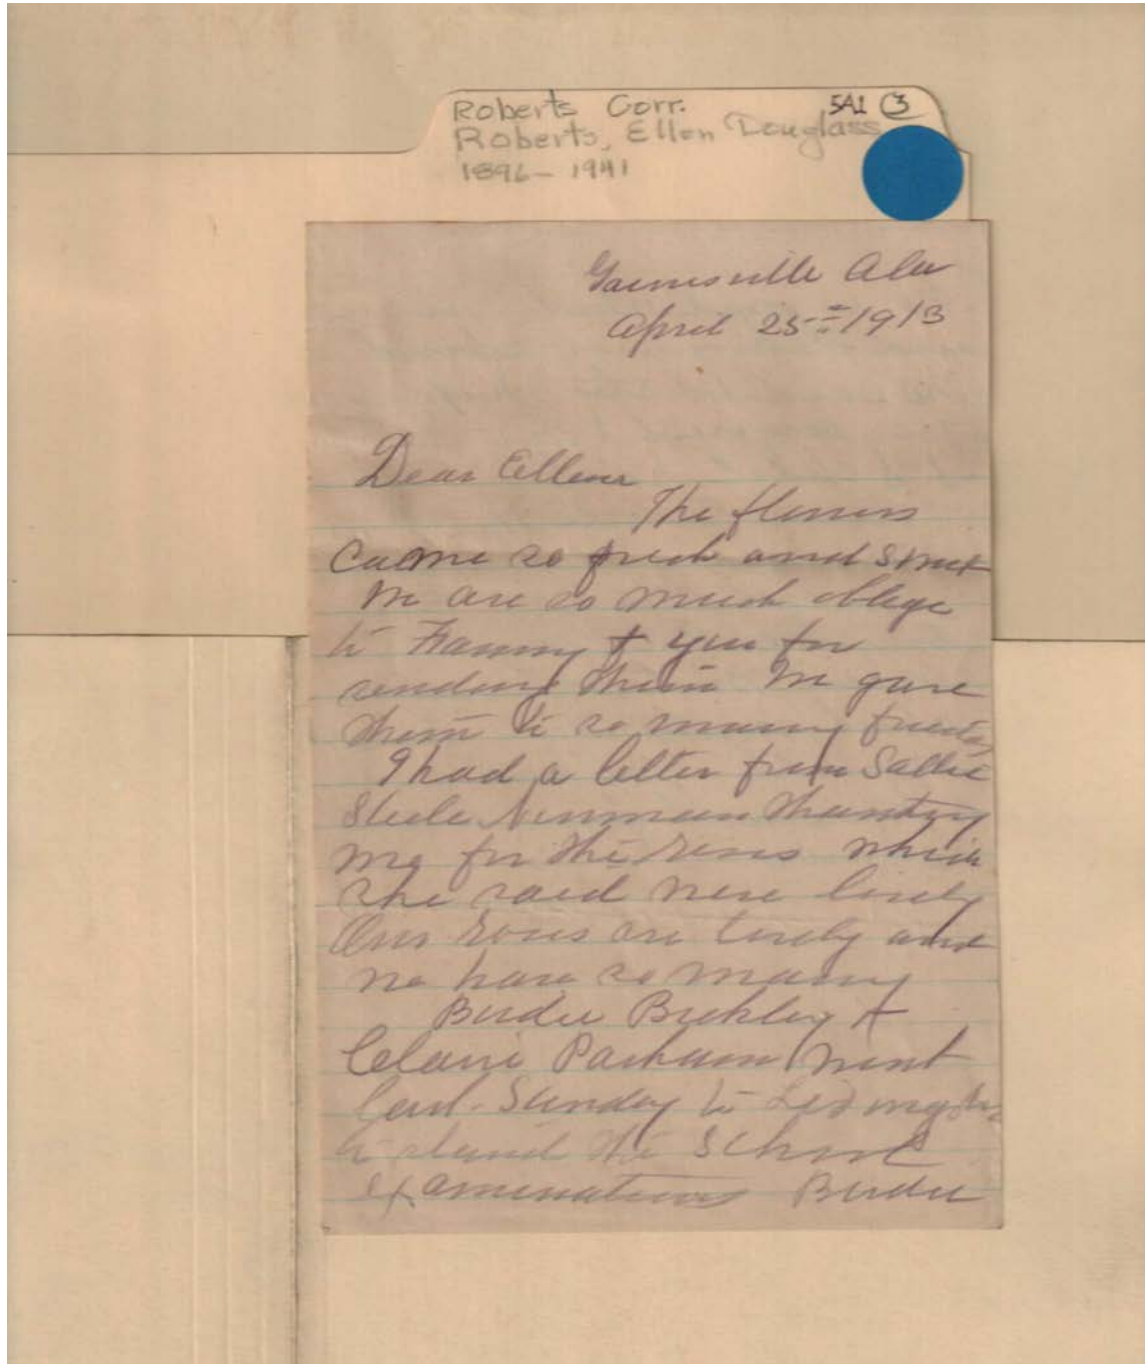 Roberts Corr. 5A1 (3)
Roberts, Ellen Douglass
1896-1941
Gainesville Ala
April 25th 1913
Dear Ellen
The flowers
came so fresh and sweet
We are so much oblige
to Fanny & you for
sending them We gave
them to so many
I had a letter from Sallie
Steele thanking
me for the roses which
she said were lovely
Our roses are lovely and
we have so many
Birdie &
Claire Parham went
last Sunday to
to stand the School
examinations Birdie